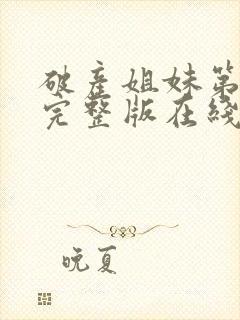 破产姐妹第
完整版在线
晚夏